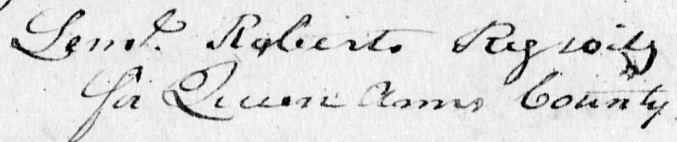 Saml. Roberts Reg wills
for Queen Anns County